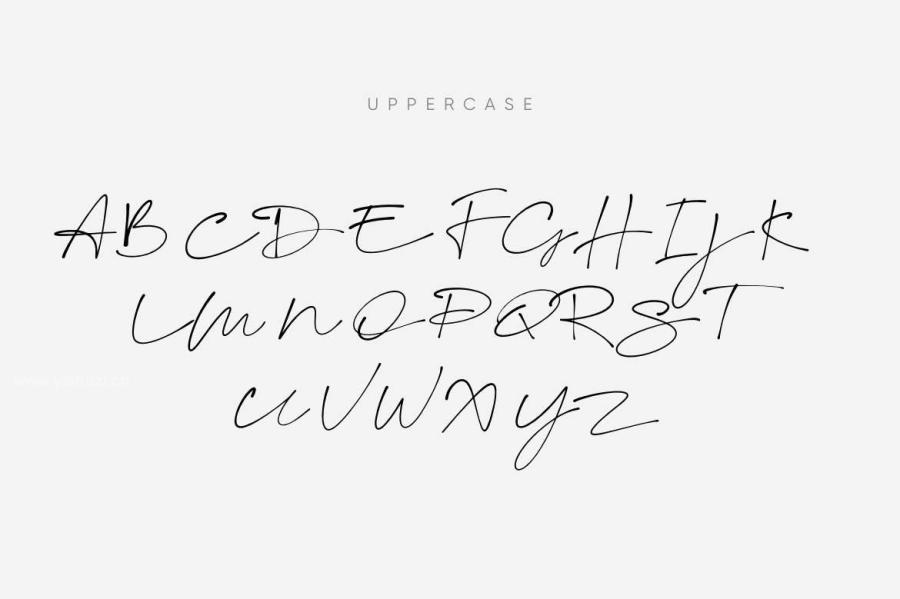 UPPERCASE
ABCDEFGHIJK
LMNOPQRST
UVWXYZ